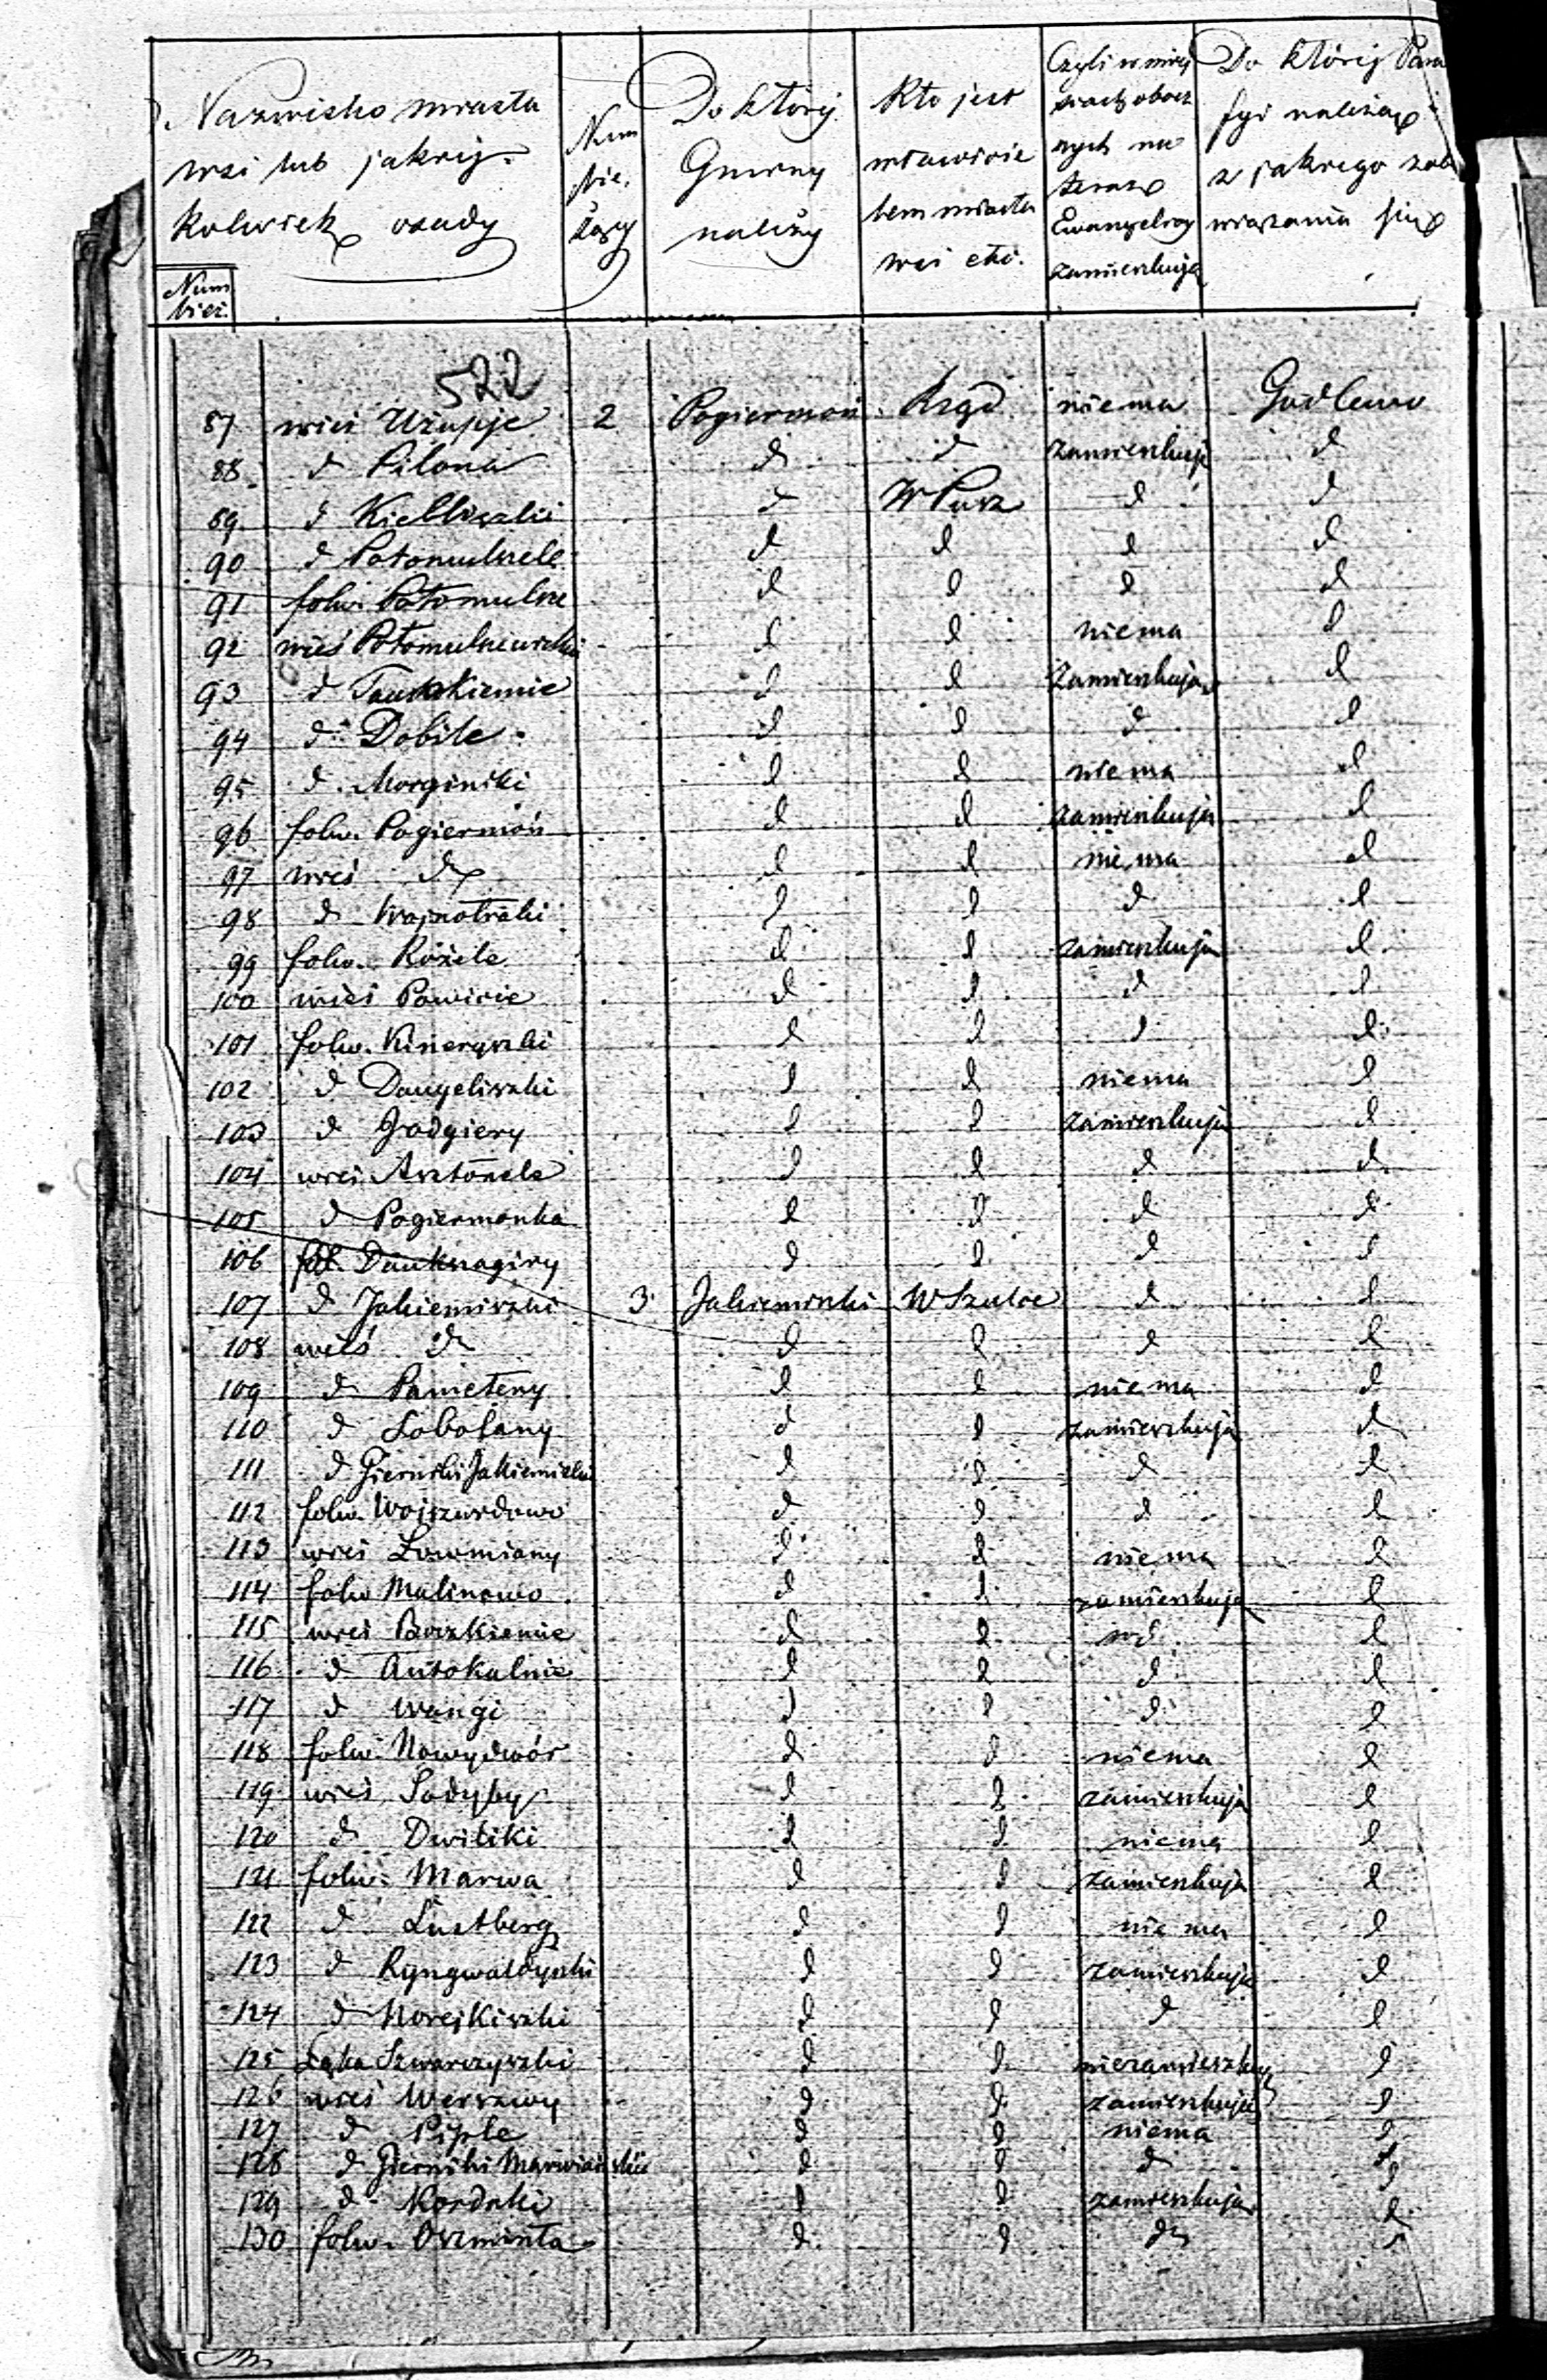 Nazwisko miasta
wsi lub jakiej
kolwiek osady
Num
bież.
Num
bie.
żący
Do której
Gminy
należy
Kto jest
właścicie
lem miasta
wsi etc.
Czyli w miej
scach obecz
nych na
teraz
Ewangelicy
zamieszkują
Do której Para
fyi należą
z jakiego zob
wiązania się
522
87 wieś Użupje 2 Pogiermoń Rząd niema Godlewo
88 d Pilona d d zamieszkują d
89 d Kiełliszki d W Pusz d d
90 d Potomulszele d d d d
91 folw. Potomulsze d d d d
92 wieś Potomulszewizki d d niema d
93 d Tauszkiemie d d zamieszkują d
94 d Dobile d d d d
95 d Morginiki d d niema d
96 folw. Pogiermoń d d zamieszkują d
97 wieś d d d niema d
98 d Wajznotraki d d d d
99 folw. Rożele d d zamieszkują d
100 wieś Powicie d d d d
101 folw. Kineryszki d d d d
102 d Daugeliszki d d niema d
103 d Jodgiery d d zamieszkują d
104 wieś Asztonele d d d d
105 d Pogiermonka d d d d
106 fol. Dauksagiry d d d d
107 d Jakiemiszki 3 Jakiemiszki W Szulce d d
108 wieś d d d d d
109 d Panieteny d d niema d
110 d Sobolany d d zamieszkują d
111 d Giernihi Jakiemiszki d d d d
112 folw. Wojszwidowo d d d d
113 wieś Łowmiany d d niema d
114 folw Malinowo d d zamieszkują d
115 wieś Boszkiemie d d d d
116 d Antokalnie d d d d
117 d Wangi d d d d
118 folw. Nowydwór d d niema d
119 wieś Sadyby d d zamieszkują d
120 d Dwiliki d d niema d
121 folw. Marwa d d zamieszkują d
122 d Lustberg d d niema d
123 d Ryngwaldyszki d d zamieszkują d
124 d Norejkiszki d d d d
125 Łąka Szwarczyszki d d niezamieszkuj d
126 wieś Werszwy d d zamieszkują d
127 d Piple d d niema d
128 d Giernihi Marwiańskie d d d d
129 d Kordaki d d zamieszkują d
130 folw. Oszminta d d d d